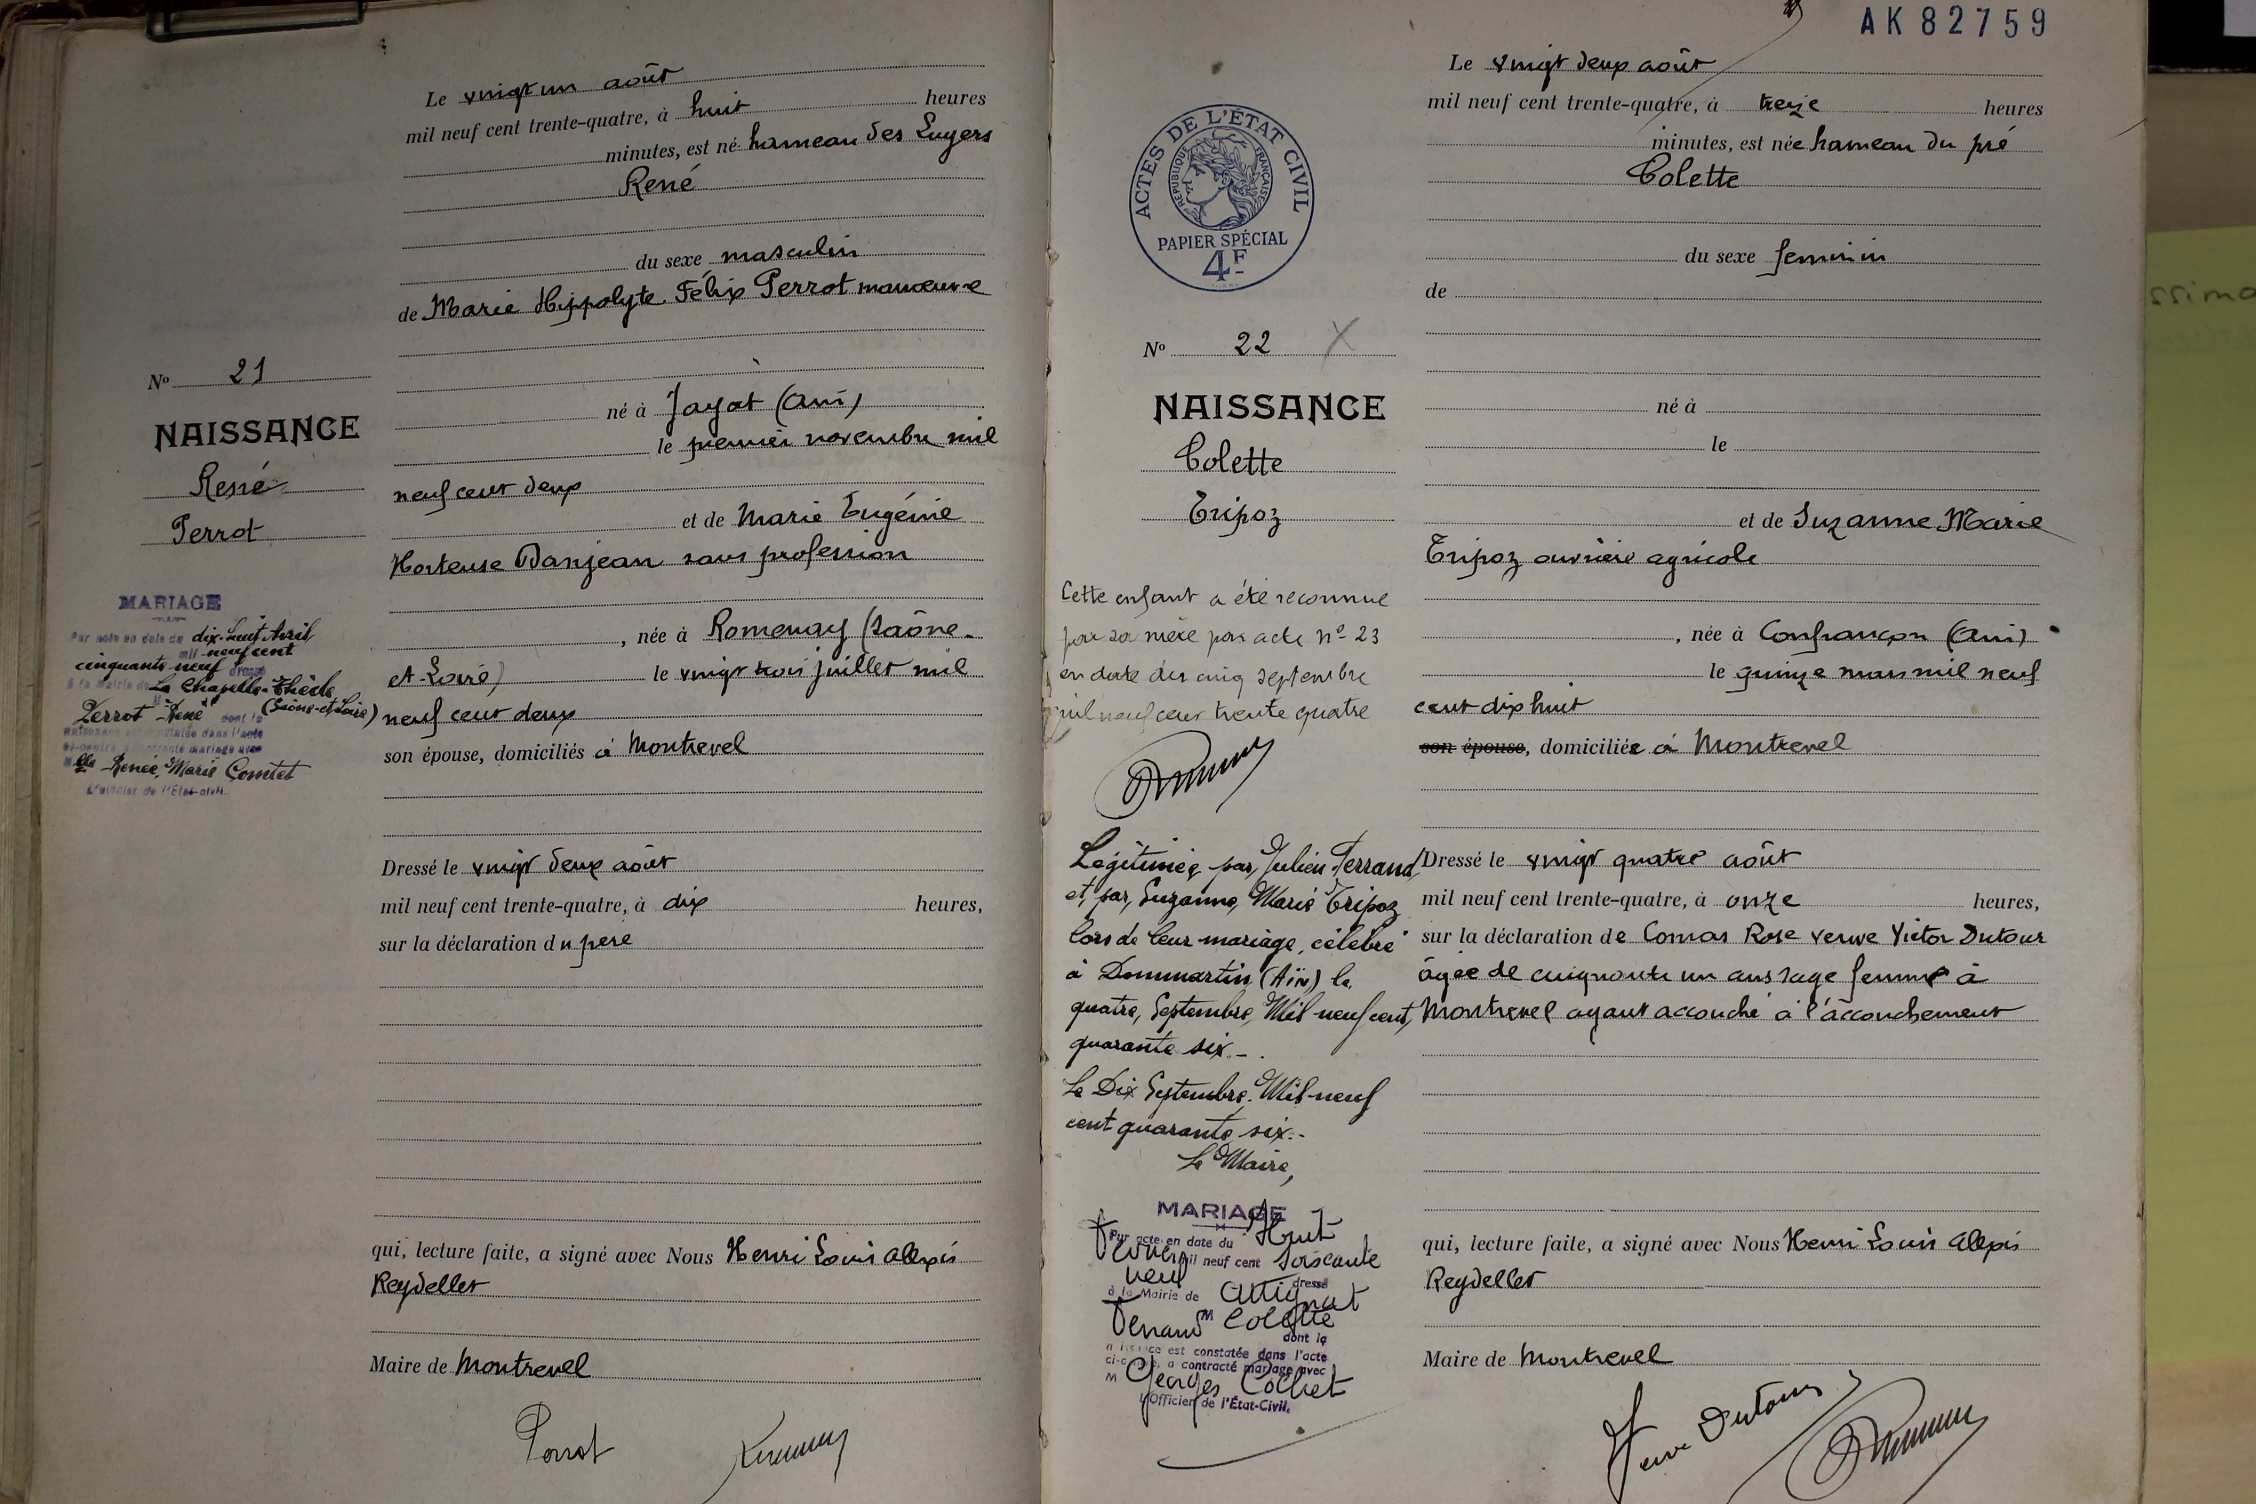 Le vingt un août
mil neuf cent trente-quatre, à huit heures
minutes, est né hameau des Luyers
René
du sexe masculin
de Marie Hippolyte Félix Perrot manœuvre
né à Jayat (Ain)
le premier novembre mil
neuf cent deux
et de Marie Eugénie
Hortense Danjean sans profession
, née à Romenay (Saône-
et-Loire) le vingt trois juillet mil
neuf cent deux
son épouse, domiciliés à Montrevel
Dressé le vingt deux août
mil neuf cent trente-quatre, à dix heures,
sur la déclaration du père
qui, lecture faite, a signé avec Nous Henri Louis Alexis
Reydellet
Maire de Montrevel
Perrot
No 21
NAISSANCE
René
Perrot
MARIAGE
Par acte en date du dix-neuf Avril
mil neuf cent
cinquante-neuf dressé
à la Mairie de La Chapelle-Thècle
(Saône-et-Loire)
M Perrot "René" dont la
naissance est constatée dans l'acte
ci-contre a contracté mariage avec
Mlle Renée, Marie Comtet
L'Officier de l'État-civil
AK82759
ACTES DE L'ÉTAT CIVIL
RÉPUBLIQUE FRANÇAISE
PAPIER SPÉCIAL
4F
No 22
NAISSANCE
Colette
Tripoz
Cette enfant a été reconnue
par sa mère par acte no 23
en date du cinq septembre
mil neuf cent trente quatre
Légitimée par Julien Ferrand
et par Suzanne Marie Tripoz
lors de leur mariage célébré
à Dommartin (Ain) le
quatre Septembre Mil neuf cent
quarante six.-
Le Dix Septembre Mil neuf
cent quarante six.-
Le Maire,
MARIAGE
Par acte en date du Huit
Février mil neuf cent soixante
neuf dressé
à la Mairie de Attignat
M Ferrand Colette
dont la
naissance est constatée dans l'acte
ci-contre, a contracté mariage avec
M Georges Cochet
l'Officier de l'État-Civil.
Le vingt deux août
mil neuf cent trente-quatre, à treize heures
minutes, est née hameau du pré
Colette
du sexe feminin
de
né à
le
et de Suzanne Marie
Tripoz ouvrière agricole
, née à Confrançon (Ain)
le quinze mars mil neuf
cent dix huit
son épouse, domiciliée à Montrevel
Dressé le vingt quatre août
mil neuf cent trente-quatre, à onze heures,
sur la déclaration de Comas Rose veuve Victor Dutour
âgée de cinquante un ans sage femme à
Montrevel ayant accouché à l'accouchement
qui, lecture faite, a signé avec Nous Henri Louis Alexis
Reydellet
Maire de Montrevel
Veuve Dutour